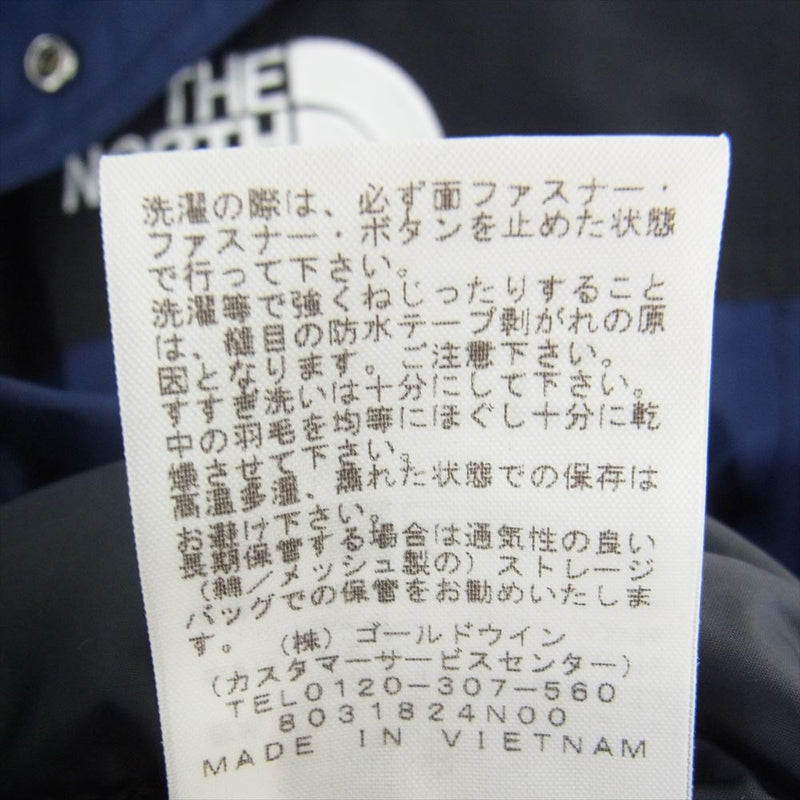 THE
NORTH
洗濯の際は、必ず面ファスナー・
ファスナー・ボタンを止めた状態
で行って下さい。
洗濯等で強くねじったりすること
は、縫目の防水テープ剥がれの原
因となります。ご注意下さい。
すすぎ洗いは十分にして下さい。
中の羽毛を均等にほぐし十分に乾
燥させて下さい。
高温多湿、濡れた状態での保存は
お避け下さい。
長期保管する場合は通気性の良い
(綿/メッシュ製の)ストレージ
バッグでの保管をお勧めいたしま
す。 (株)ゴールドウイン
(カスタマーサービスセンター)
TEL0120-307-560
8031824N00
MADE IN VIETNAM